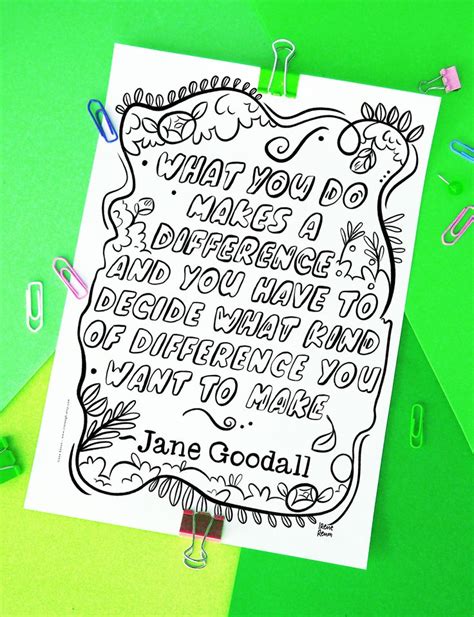 WHAT YOU DO
MAKES A
DIFFERENCE
AND YOU HAVE TO
DECIDE WHAT KIND
OF DIFFERENCE YOU
WANT TO MAKE
-Jane Goodall